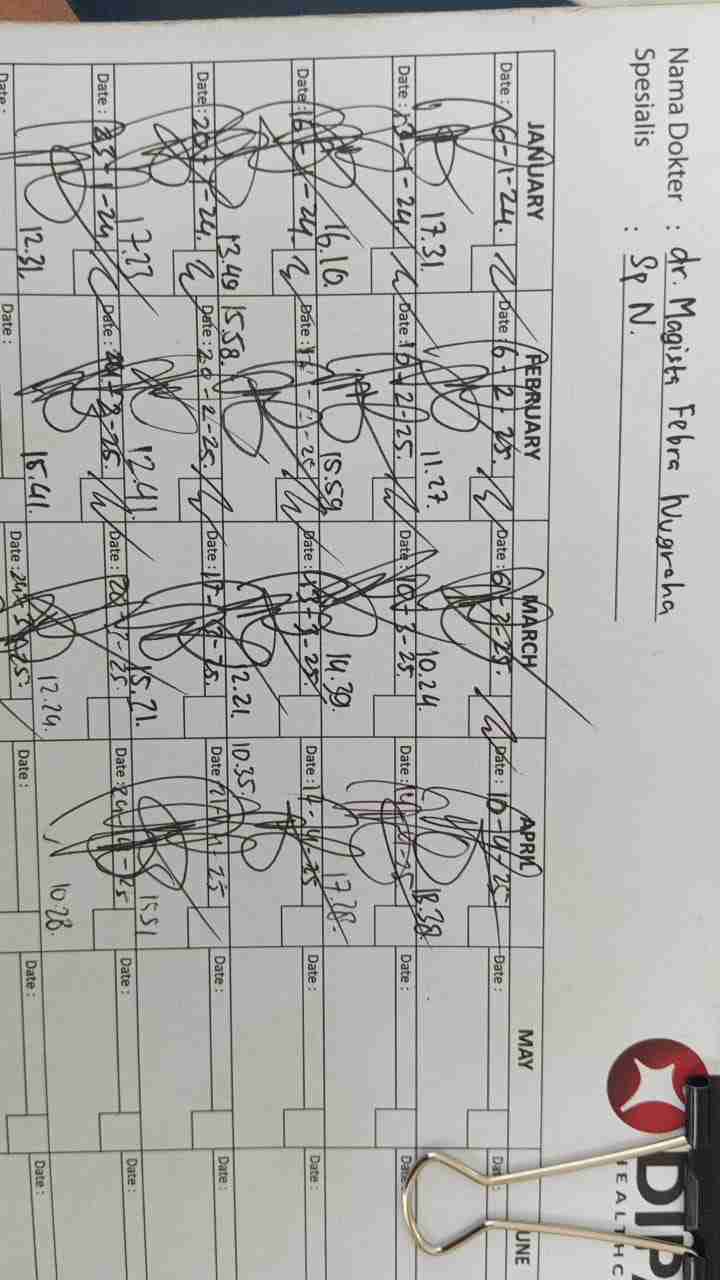 Nama Dokter : dr. Magista Febra Nugraha
Spesialis : Sp N.
JANUARY FEBRUARY MARCH APRIL MAY
Date : 6-1-24. Date : 6-2-25. Date : 6-3-25. Date : 10-4-25 Date :
17.31. 11.27. 10.24. 18.38.
Date : 13-1-24. Date : 10-2-25. Date : 10-3-25. Date : 14-4-25 Date :
16.10. 15.59. 14.39. 17.28.
Date : 16-1-24. Date : Date : 13-3-25. Date : 17-4-25 Date : Date :
13.49 15.58. 12.21. 10.35.
Date : 20-1-24. Date : 20-2-25. Date : 17-3-25. Date : 21-4-25 Date : Date :
17.23 12.41. 15.21. 15.51
Date : 23-1-24. Date : 24-2-25. Date : 20-3-25. Date : 24-4-25 Date : Date :
12.31. 15.41. 12.24. 10.28
Date : Date : Date : 24-3-25. Date : Date : Date :